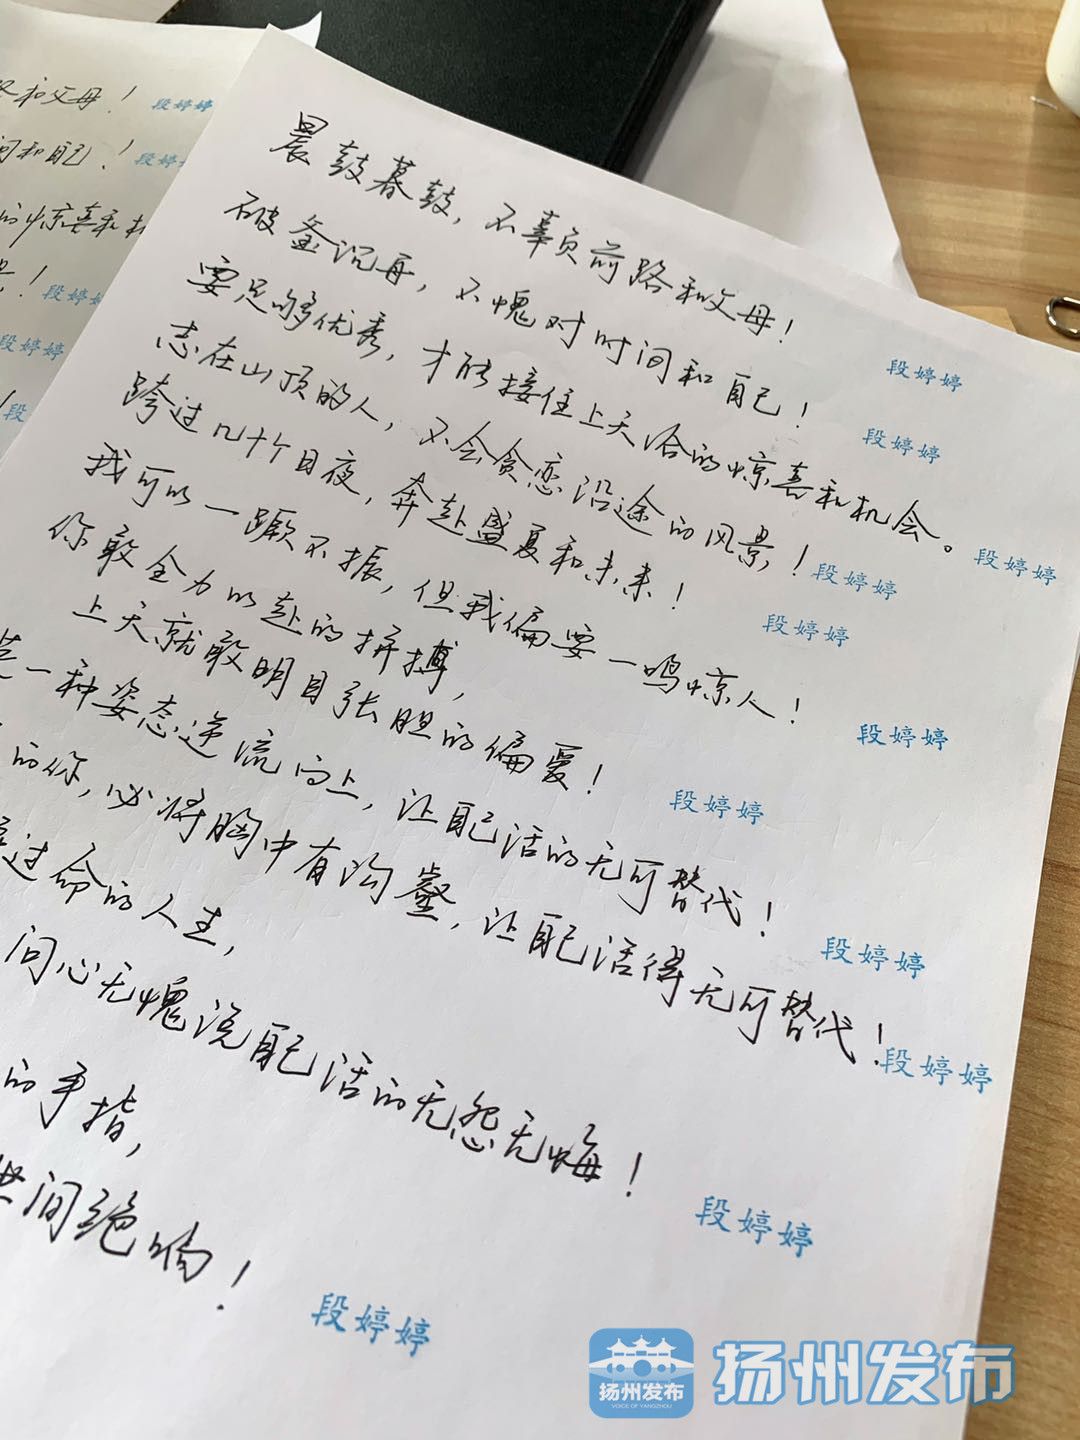 晨鼓暮鼓，不辜负前路和父母！
段婷婷
破釜沉舟，不愧对时间和自己！
段婷婷
要足够优秀，才能接住上天给的惊喜和机会。
段婷婷
志在山顶的人，不会贪恋沿途的风景！
段婷婷
跨过几十个日夜，奔赴盛夏和未来！
段婷婷
我可以一蹶不振，但我偏要一鸣惊人！
段婷婷
你敢全力以赴的拼搏，
上天就敢明目张胆的偏爱！
段婷婷
一种姿态逆流向上，让自己活的无可替代！
段婷婷
的你，必将胸中有沟壑，让自己活得无可替代！
段婷婷
过命的人生，
问心无愧说自己活的无怨无悔！
段婷婷
的手指，
间绝响！
段婷婷
和父母！
段婷婷
间和自己！
段婷
的惊喜和
段婷婷
段婷婷
段
扬州发布
VOICE OF YANGZHOU
扬州发布